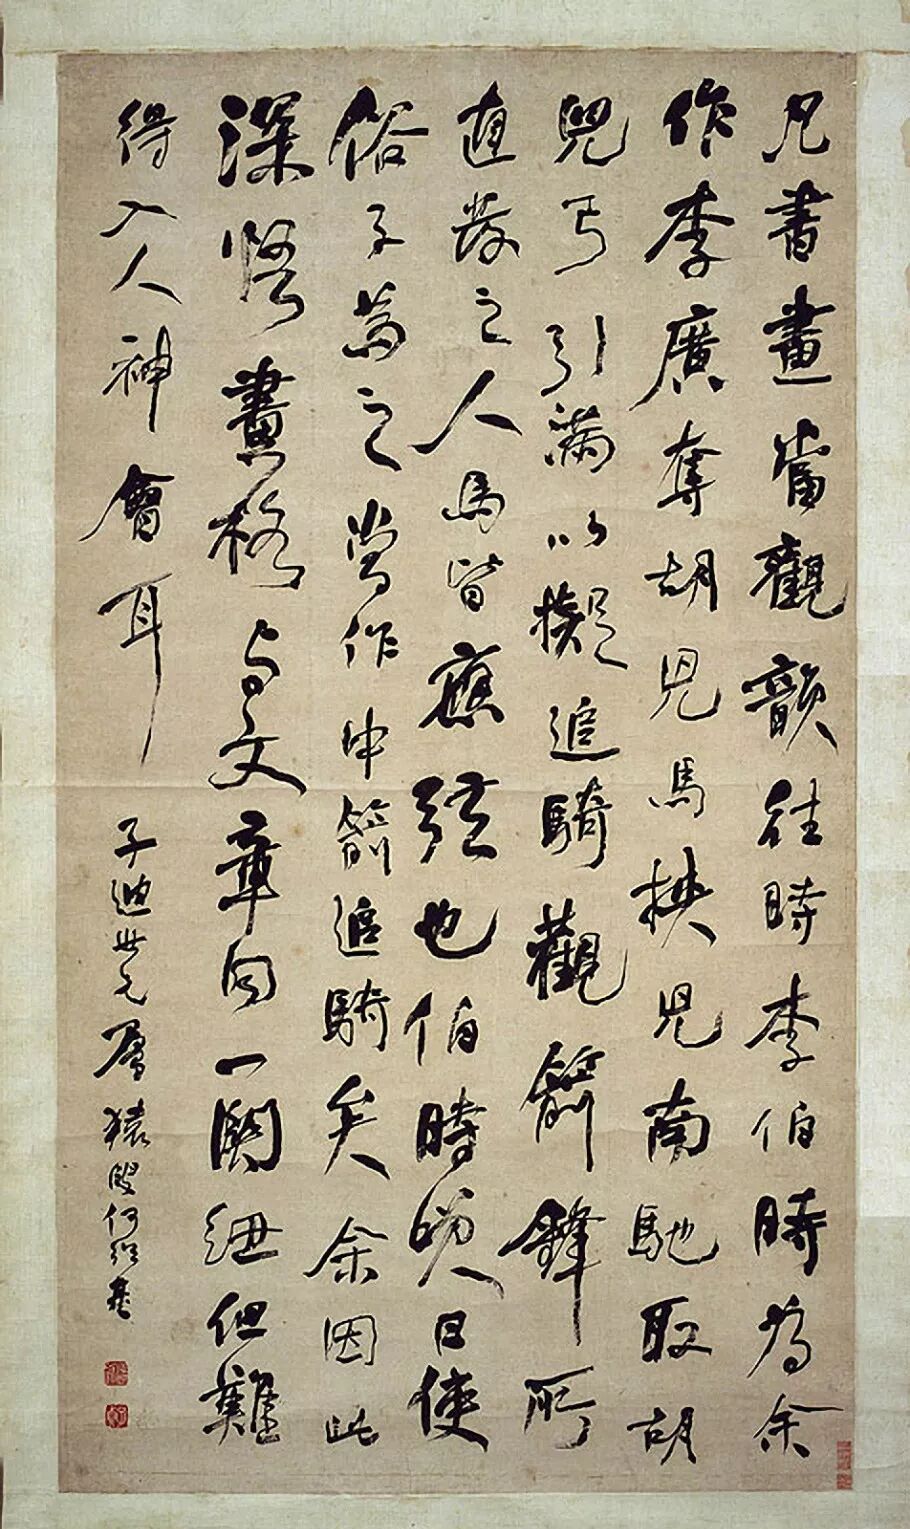 凡書畫當觀韻往時李伯時為余
作李廣奪胡兒馬挾兒南馳取胡
兒弓引滿以擬追騎觀箭鋒所
直發之人馬皆應弦也伯時笑曰使
俗子為之當作中箭追騎矣余因此
深悟畫格与文章同一關紐但難
得入人神會耳 子迪世兄屬 猿叟何紹基